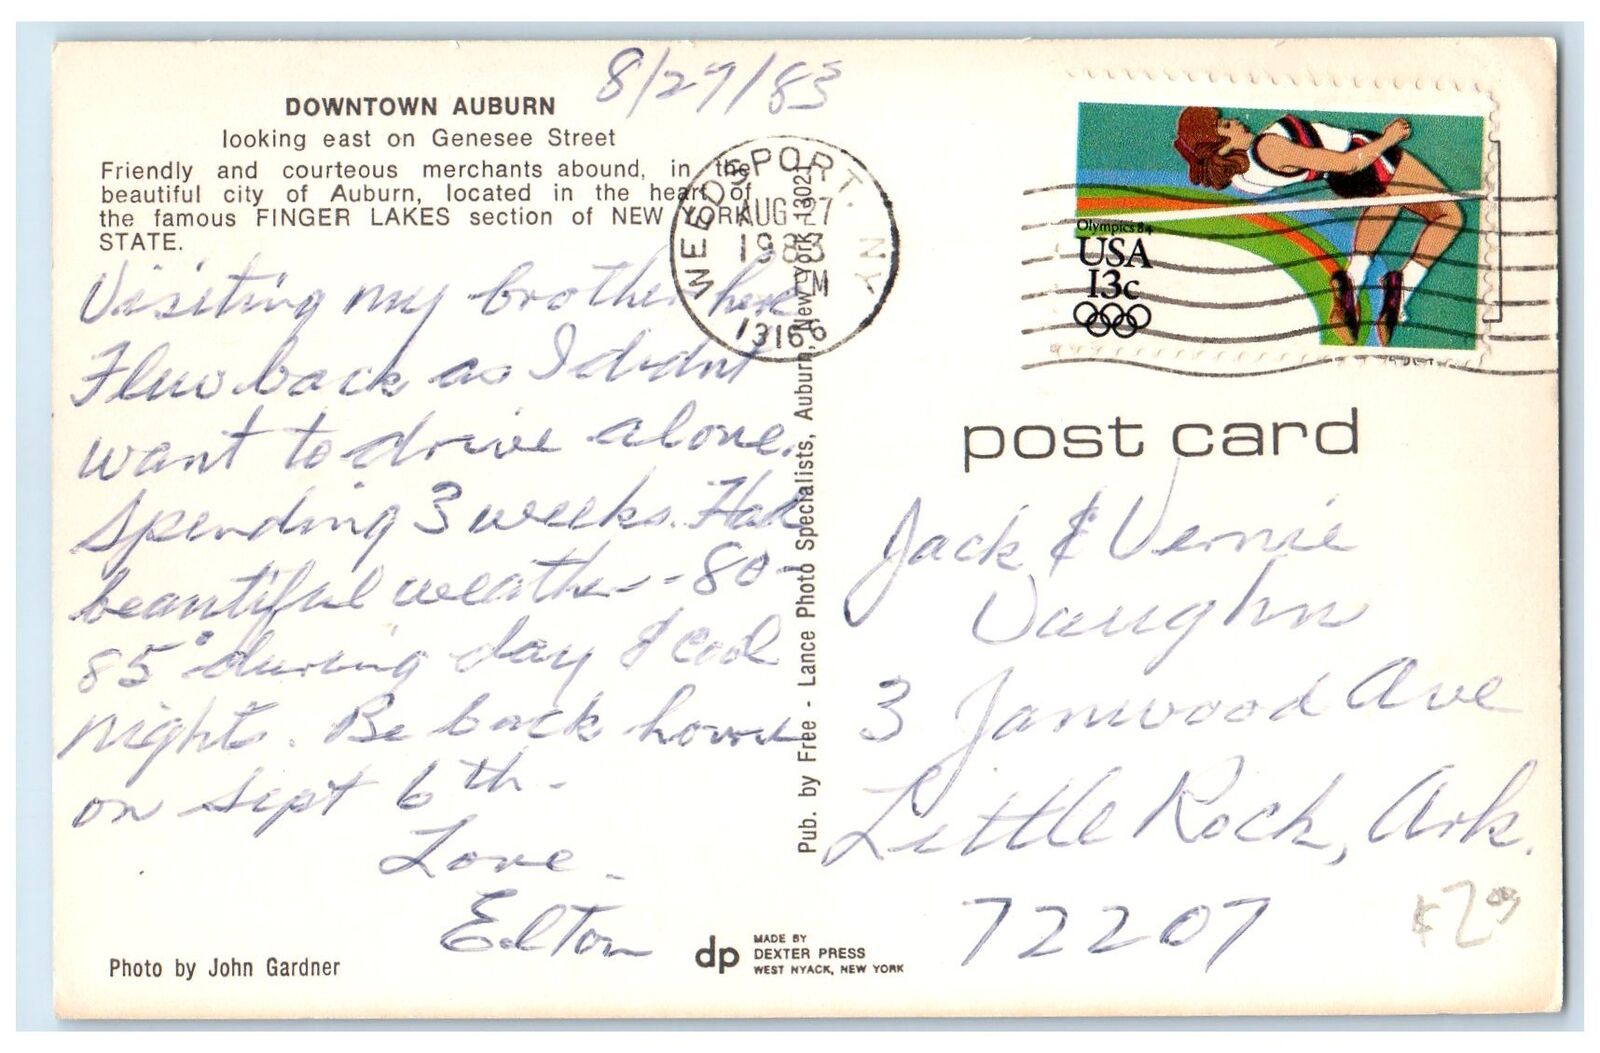 8/27/83
DOWNTOWN AUBURN
looking east on Genesee Street
Friendly and courteous merchants abound, in the
beautiful city of Auburn, located in the heart of
the famous FINGER LAKES section of NEW YORK
STATE.
Visiting my brother here
Flew back as I didnt
want to drive alone.
Spending 3 weeks. Had
beautiful weather - 80-
85° during day & cool
nights. Be back home
on Sept 6th.
Love.
Elton
Photo by John Gardner
WEEDSPORT. NY
AUG 27
1983
PM
13166
Pub. by Free - Lance Photo Specialists, Auburn, New York 13021
dp
MADE BY
DEXTER PRESS
WEST NYACK, NEW YORK
Olympics 84
USA
13c
post card
Jack & Vernie
Vaughn
3 Janwood Ave
Little Rock, Ark.
72207
$2.00